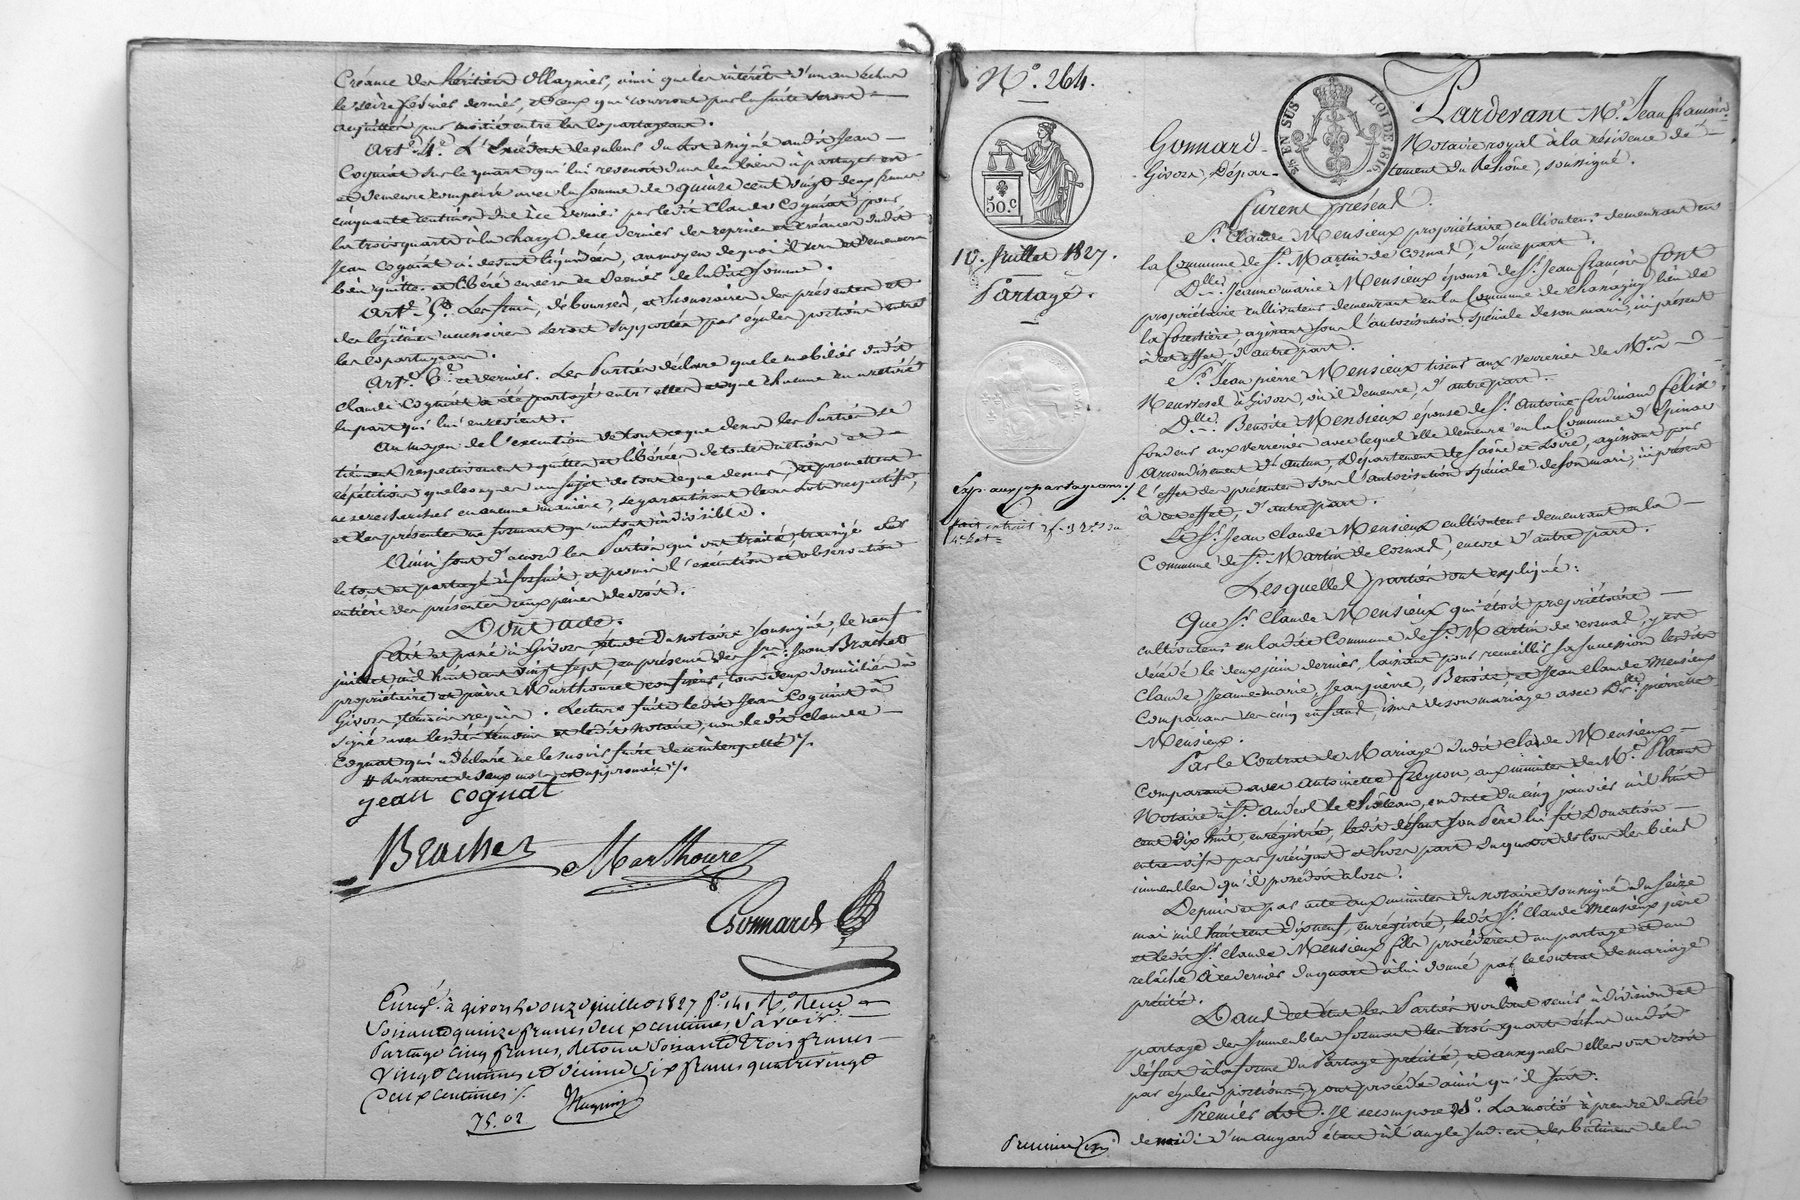 Créance des héritiers Ollagnier, ainsi que les intérêts d'un an échus
le seize février dernier, et ceux qui courront par la suite seront
acquittés par moitié entre les copartageans.
Art. 4e. L'excédent de valeur du lot assigné audit Jean
Cognat sur le quart qui lui revenoit dans les biens à partager est
et demeure compensé avec la somme de quinze cent vingt deux francs
cinquante centimes due à ce dernier par ledit Claude Cognat pour
les trois quarts à la charge de ce dernier des reprises et créances dudit
Jean Cognat ci-dessus liquidées, au moyen de quoi il sera et demeurera
bien quitte et libéré envers ce dernier de ladite somme.
Art. 5e. Les frais, déboursés, et honoraires des présentes et
de légitimes accessoires seront supportés par égales portions entre
les copartageans.
Art. 6e et dernier. Les Parties déclare que le mobilier dudit
Claude Cognat a été partagé entr'elles et que chacune en a retiré
la part qui lui en revient.
Au moyen de l'exécution de tout ce que dessus les Parties se
tiennent respectivement quittes et libérées de toutes actions et
répétitions quelconques au sujet de tout ce que dessus, et promettent
ne se rechercher en aucune manière, se garantissant leurs lots respectifs,
et les présentes ne formant qu'un tout indivisible.
Ainsi sont d'accord les Parties qui ont traité, transigé sur
le tout et partagé à forfait, et promis l'exécution et observation
entière des présentes aux peines de droit.
Dont acte.
Fait et passé à Givors, étude du notaire soussigné, le neuf
juillet mil huit cent vingt sept, en présence des Srs. Jean Brachet
propriétaire et pierre Marthoure confiseur, tous deux domiciliés à
Givors, témoins requis. Lecture faite ledit Jean Cognat a
signé avec lesdits témoins et ledit notaire, non ledit Claude
Cognat qui a déclaré ne le savoir faire de ce interpellé ./.
# la rature de deux mots est approuvée ./.
jean cognat
Brachet Marthoure
Gonnard
Enreg. à givors le onze juillet 1827 fo. 141 Ro. Reçu
Soixante quinze francs deux centimes, Savoir:
Partage cinq francs, retour soixante trois francs
vingt centimes et décime six francs quatrevingt
deux centimes ./.
75.02
No. 264.
50.c
10. Juillet 1827.
Partage.
Exp. aux copartageans ./.
25c EN SUS
LOI DE 1816
Pardevant Me. Jean François
Gonnard Notaire royal à la résidence de
Givors, Dépar- tement du Rhône, soussigné.
Furent présens.
Sr. Claude Mensieux propriétaire cultivateur demeurant en
la Commune de St. Martin de Cornas, d'une part.
Dlle. Jeanne marie Mensieux épouse de Sr. Jean François Font
propriétaire cultivateur demeurant en la Commune de Chanagny lieu de
la forestière, agissant sous l'autorisation spéciale de son mari, ici présent
à cet effet, d'autre part.
Sr. Jean pierre Mensieux tiseur aux verreries de Mrs.
Neuvesel à Givors, où il demeure, d'autre part.
Dlle. Benoite Mensieux épouse de Sr. Antoine Ferdinand Felix
fondeur aux verreries avec lequel elle demeure en la Commune d'Epinac
Arrondissement d'autun, Département de Saône et Loire, agissant pour
l'effet des présentes sous l'autorisation spéciale de son mari, ici présent
à cet effet, d'autre part.
Et Sr. Jean Claude Mensieux cultivateur demeurant en la
Commune de St. Martin de Cornas, encore d'autre part.
Lesquelles parties ont expliqué:
Que Sr. Claude Mensieux qui étoit propriétaire
cultivateur en ladite Commune de St. Martin de cornas, y est
décédé le deux juin dernier, laissant pour recueillir sa succession lesdits
Claude, Jeanne marie, Jean pierre, Benoite et Jean Claude Mensieux
Comparans ses cinq enfans, issus de son mariage avec Dlle. pierrette
Mensieux.
Par le Contrat de Mariage dudit Claude Mensieux
Comparant avec Antoinette Freycon, aux minutes de Me.
Notaire à St. Andéol le Château, en date du cinq janvier mil huit
cent dix huit, enregistré, ledit défunt son Père lui fit Donation
entre vifs par préciput et hors part du quart de tous les biens
immeubles qu'il possédoit alors.
Depuis et par acte aux minutes du notaire soussigné du seize
mai mil huit cent dix neuf, enregistré, ledit Sr. Claude Mensieux père
et ledit Sr. Claude Mensieux fils procédèrent au partage et au
relâche à ce dernier du quart à lui donné par le contrat de mariage
précité.
Dans cet état les Parties voulant venir à division et
partage des Immeubles formant les trois quarts échus audit
défunt à la forme du Partage précité, et auxquels elles ont droit
par égales portions, y ont procédé ainsi qu'il suit:
Premier Lot. Il se compose 1o. La moitié à prendre du côté
de midi d'un angard étant à l'angle sud-est des bâtimens de la